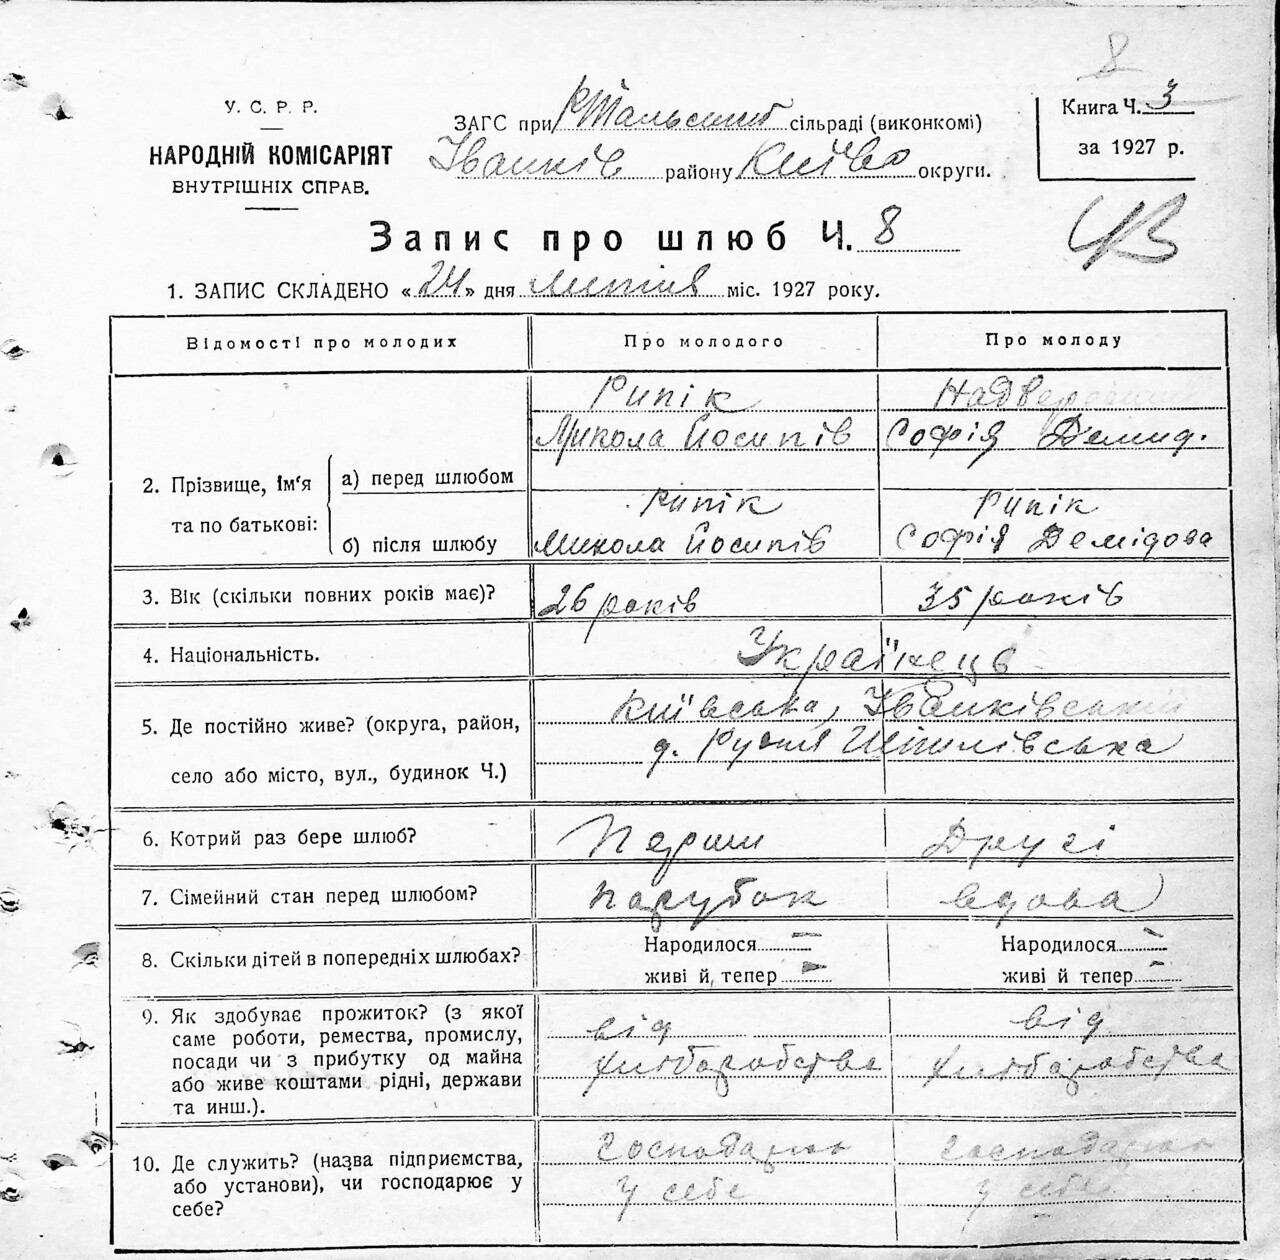 8
У. С. Р. Р.
НАРОДНІЙ КОМІСАРІЯТ
ВНУТРІШНІХ СПРАВ.
ЗАГС при сільраді (виконкомі)
Іванків району Київо округи.
Книга Ч. 3
за 1927 р.
Запис про шлюб Ч. 8
1. ЗАПИС СКЛАДЕНО «24» дня міс. 1927 року.
Відомості про молодих Про молодого Про молоду
2. Прізвище, ім'я та по батькові:
а) перед шлюбом
Рипік
Микола Йосипів
Софія Демид.
б) після шлюбу
Рипік
Микола Йосипів
Рипік
Софія Демідова
3. Вік (скільки повних років має)? 26 років 35 років
4. Національність. Українець
5. Де постійно живе? (округа, район,
село або місто, вул., будинок Ч.)
Київська, Іванківський
д. Рудня Шпилівська
6. Котрий раз бере шлюб? Перши Другі
7. Сімейний стан перед шлюбом? парубок вдова
8. Скільки дітей в попередніх шлюбах?
Народилося – Народилося –
живі й тепер – живі й тепер –
9. Як здобуває прожиток? (з якої
саме роботи, ремества, промислу,
посади чи з прибутку од майна
або живе коштами рідні, держави
та инш.).
від від
хліборобства хліборобства
10. Де служить? (назва підприємства,
або установи), чи господарює у
себе?
господарює господарює
у себе у себе